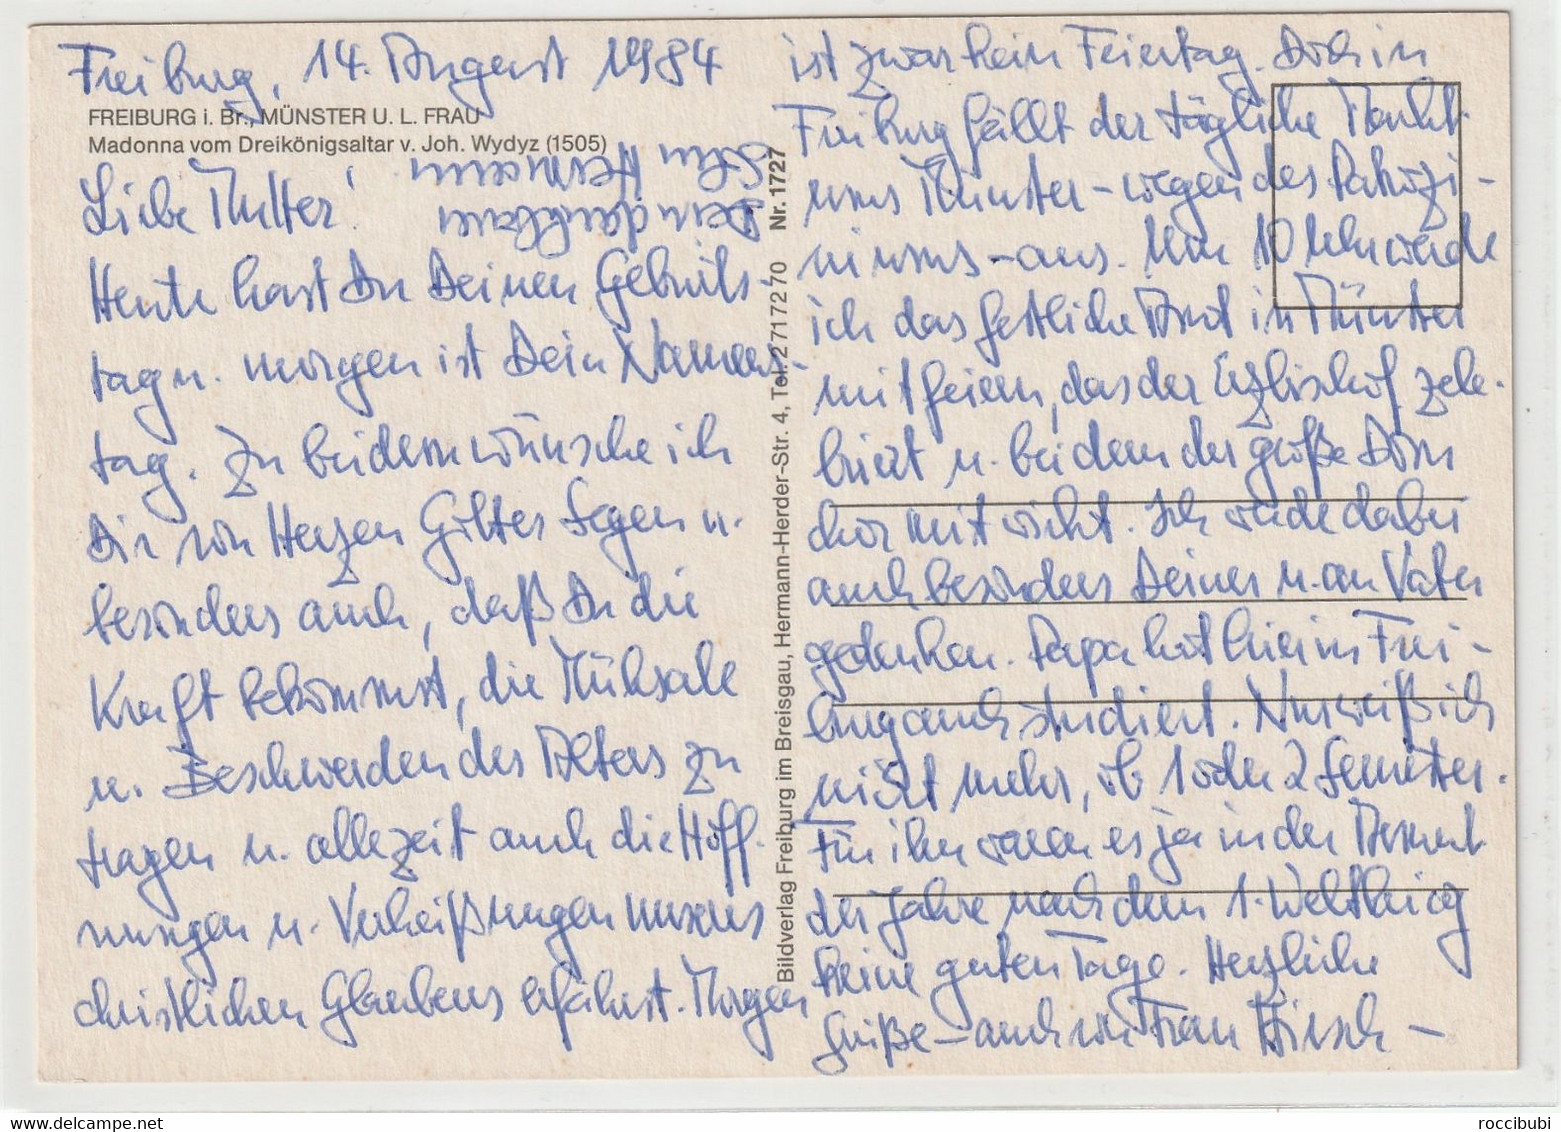 Freiburg, 14. August 1984
FREIBURG i. Br., MÜNSTER U. L. FRAU
Madonna vom Dreikönigsaltar v. Joh. Wydyz (1505)
Liebe Mutter!
Heute hast Du Deinen Geburts-
tag u. morgen ist Dein Namens-
tag. Zu beidem wünsche ich
Dir von Herzen Gottes Segen u.
besonders auch, daß Du die
Kraft bekommst, die Mühsale
u. Beschwerden des Alters zu
tragen u. allezeit auch die Hoff-
nungen u. Verheißungen unseres
christlichen Glaubens erfährst. Morgen
ist zwar kein Feiertag. Doch in
Freiburg fällt der tägliche Markt
ums Münster - wegen des Patrozi-
niums - aus. Um 10 Uhr werde
ich das festliche Amt im Münster
mitfeiern, das der Erzbischof zele-
briert u. bei dem der große Dom
chor mitwirkt. Ich werde dabei
auch besonders Deiner u. an Vater
gedenken. Papa hat hier in Frei-
burg auch studiert. Nur weiß ich
nicht mehr, ob 1 oder 2 Semester.
Für ihn waren es ja in der Armut
der Jahre nach dem 1. Weltkrieg
keine guten Tage. Herzliche
Grüße - auch von Frau Hirsch -
Dein dankbarer
Sohn Hermann.
Bildverlag Freiburg im Breisgau, Hermann-Herder-Str. 4, Tel. 27172 70 Nr. 1727
www.delcampe.net
roccibubi